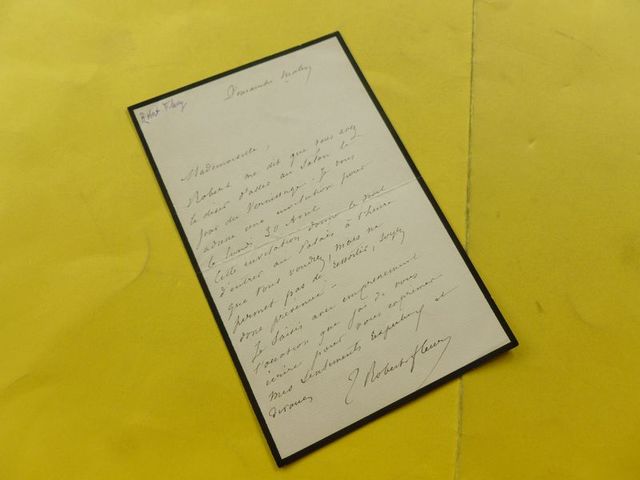 Rbert Fleury
Dimanche Matin
Mademoiselle,
Robert me dit que vous avez
le désir d'aller au Salon le
jour du Vernissage. Je vous
adresse une invitation pour
le lundi 30 Avril
Cette invitation donne le droit
d'entrer au Palais à l'heure
que vous voudrez, mais ne
permet pas de ressortir, soyez
donc prévenue -
Je saisis avec empressement
l'occasion que j'ai de vous
écrire pour vous exprimer
mes sentiments respectueux et
dévoués
T Robert-fleury